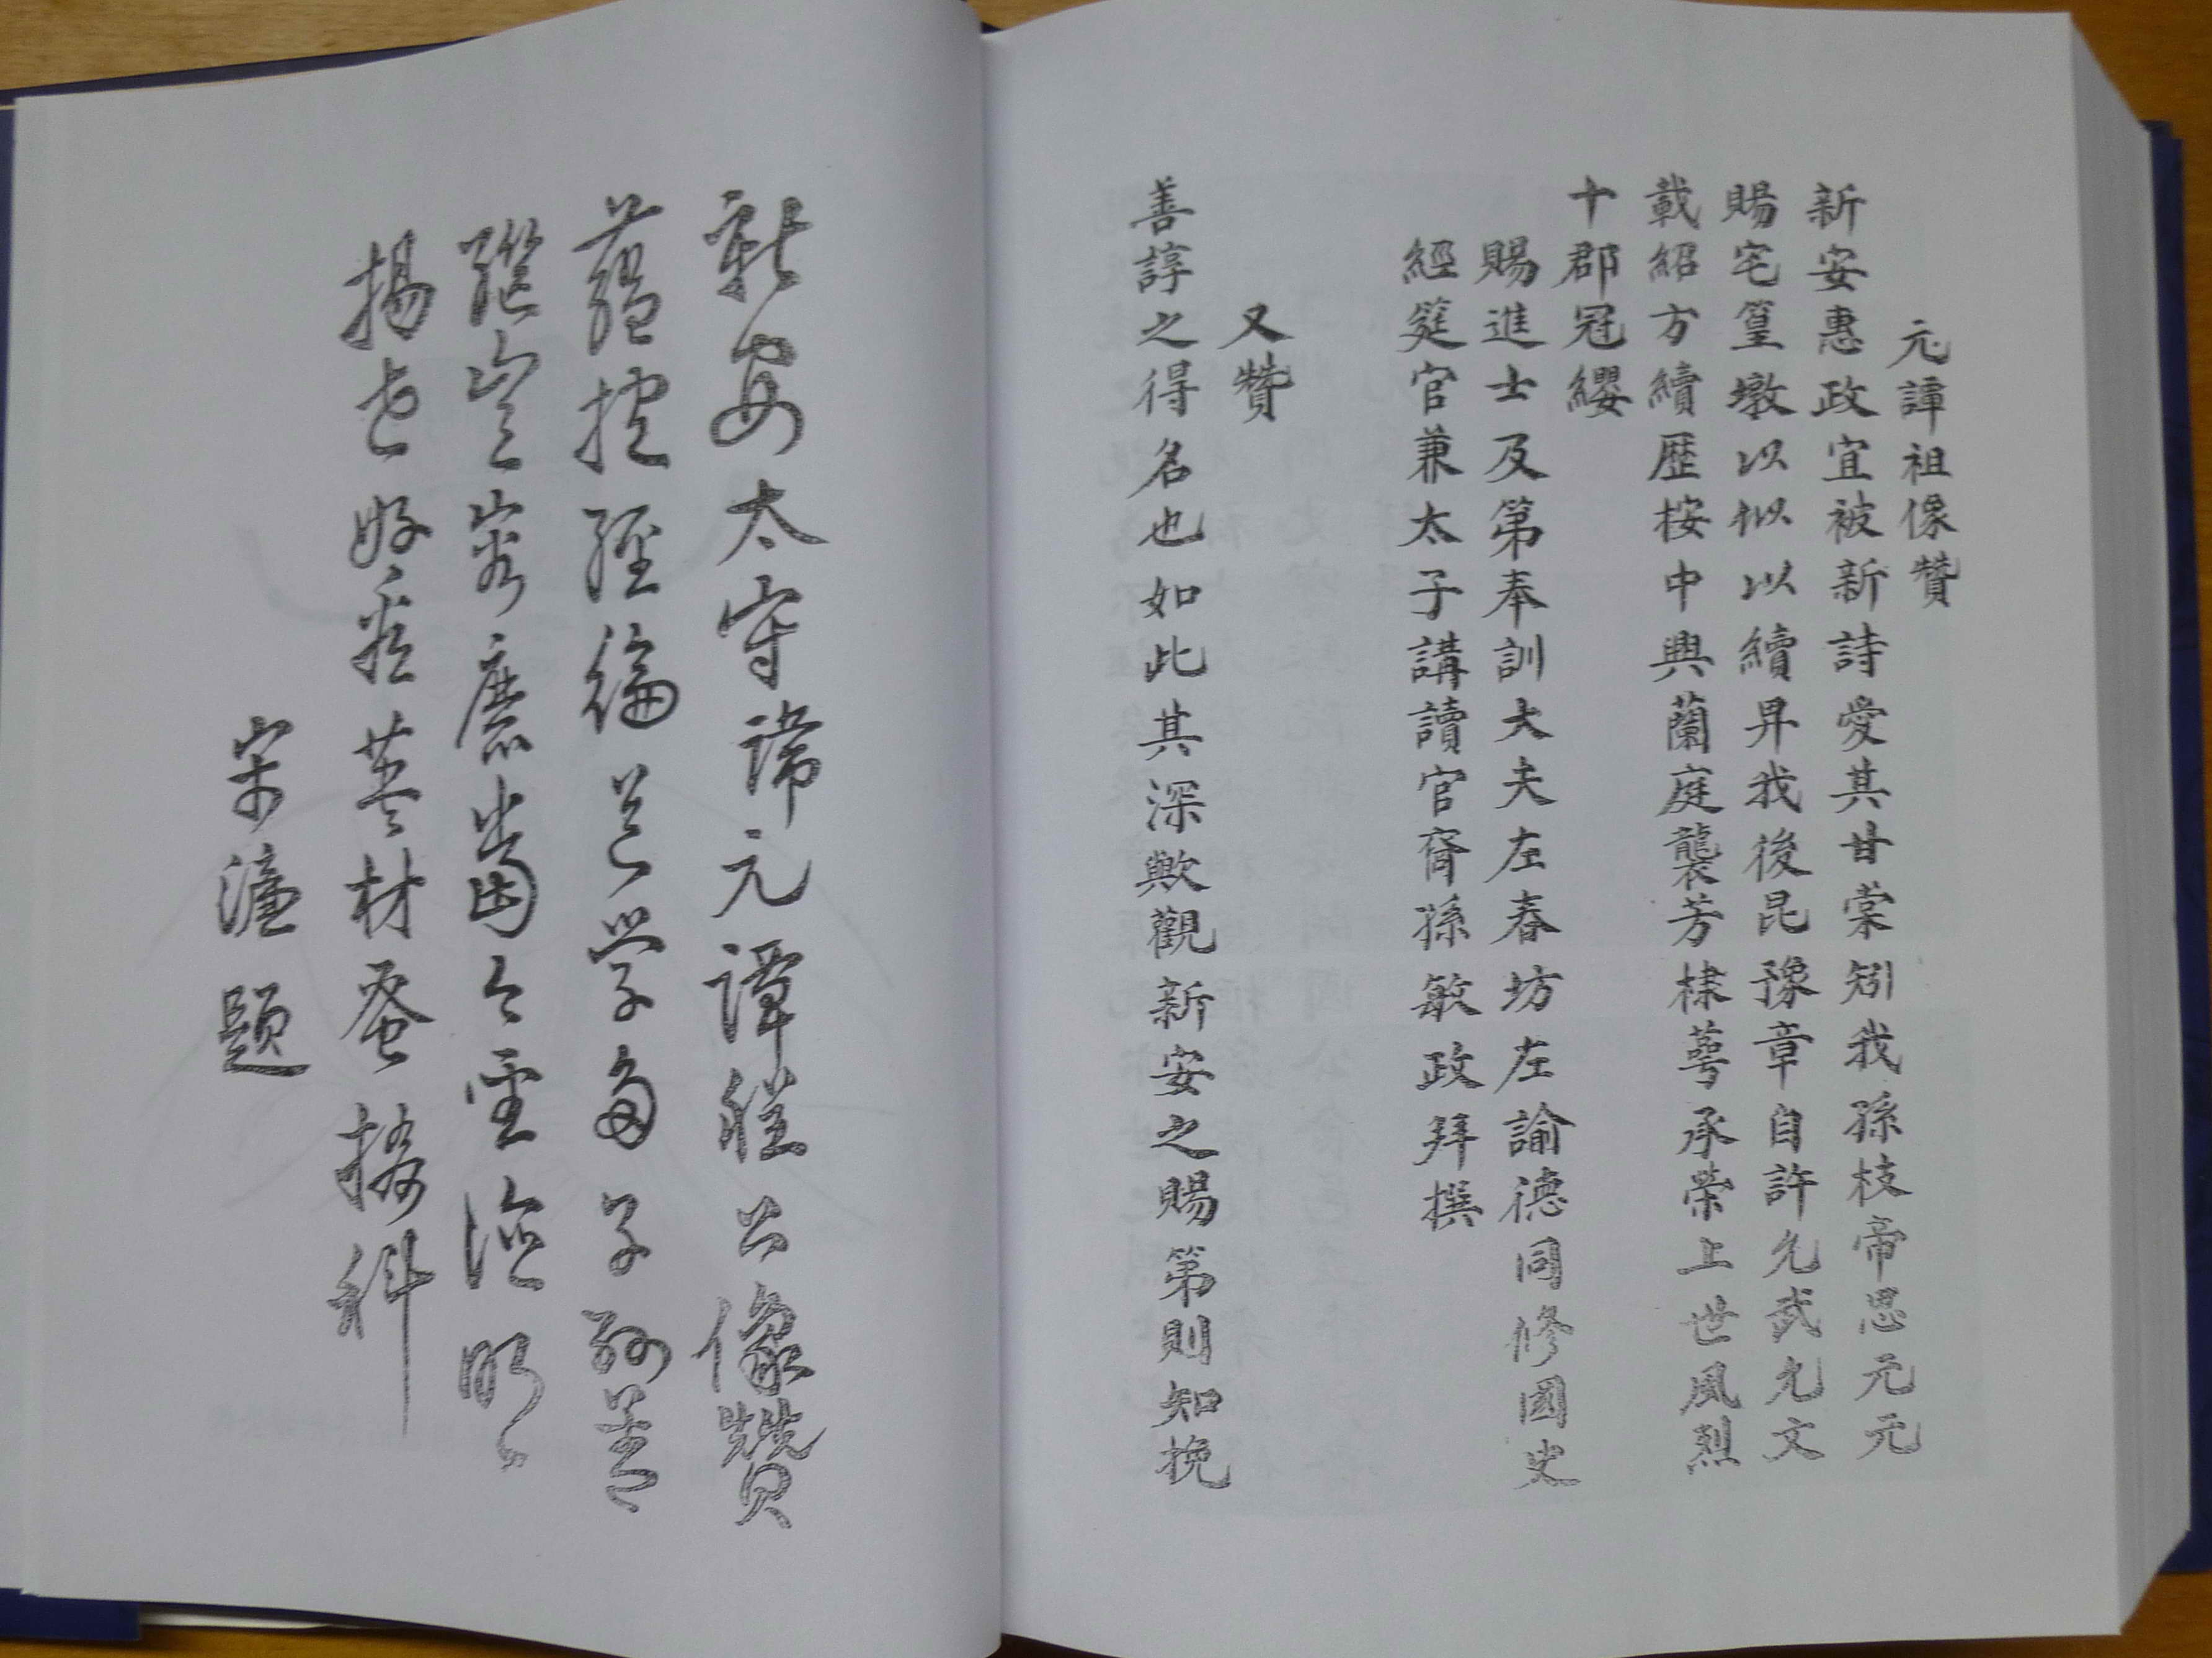 元譚祖像贊
新安惠政宜被新詩愛其甘棠矧我孫枝帝思元元
賜宅篁墩以似以續昇我後昆豫章自許允武允文
載紹方續歷桉中興蘭庭襲芳棣萼承榮上世風烈
十郡冠纓
賜進士及第奉訓大夫左春坊左諭德同修國史
經筵官兼太子講讀官裔孫敏政拜撰
又贊
善諄之得名也如此其深歟觀新安之賜第則知挽
新安太守諱元譚程公像贊
蘊抱經綸道學多子孫善
蹤
揚老好英材蚤擢科
宋濂題